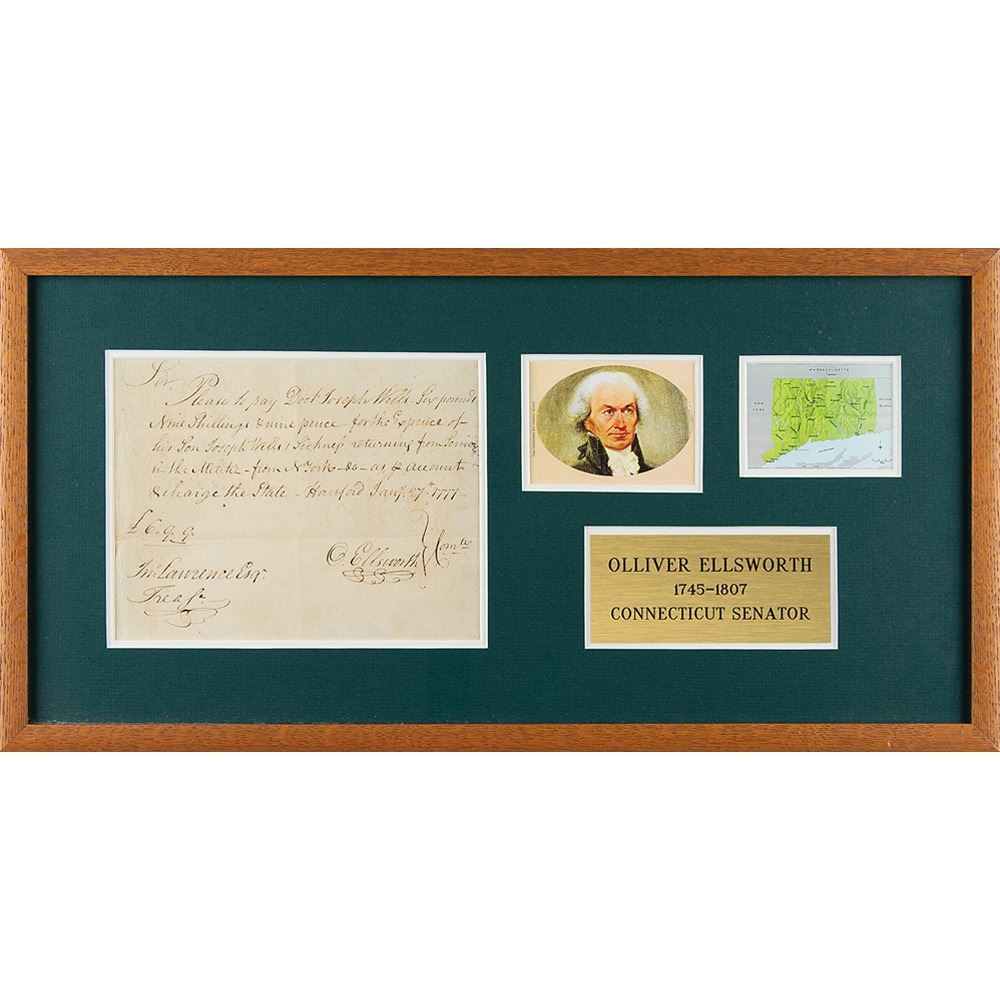 Sir
Please to pay Doct Joseph Wells Six pounds
Nine Shillings & nine pence for the Expence of
his Son Joseph Wells's Sickness returning from Service
in the Militia from N York &c as pr account
& charge the State - Hartford Jany. 27th. 1777
£6.9.9.
O. Ellsworth } Comtee
Jno. Lawrence Esqr.
Treasr.
MASSACHUSETTS
NEW
YORK
RHODE
ISLAND
OLLIVER ELLSWORTH
1745-1807
CONNECTICUT SENATOR